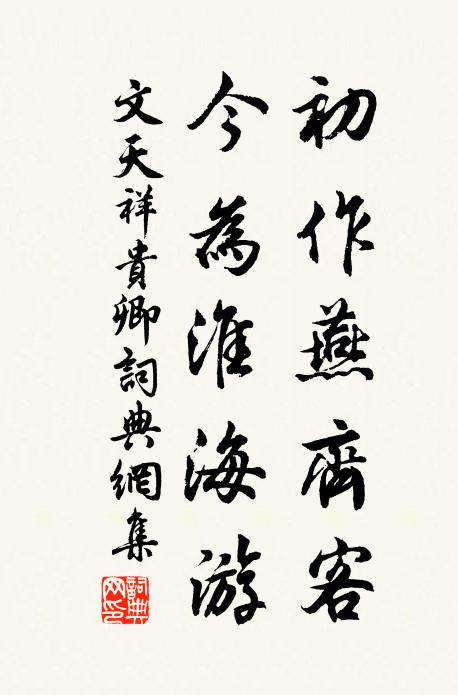 初作燕齊客
今為淮海游
文天祥貴卿詞典網集
詞典網印